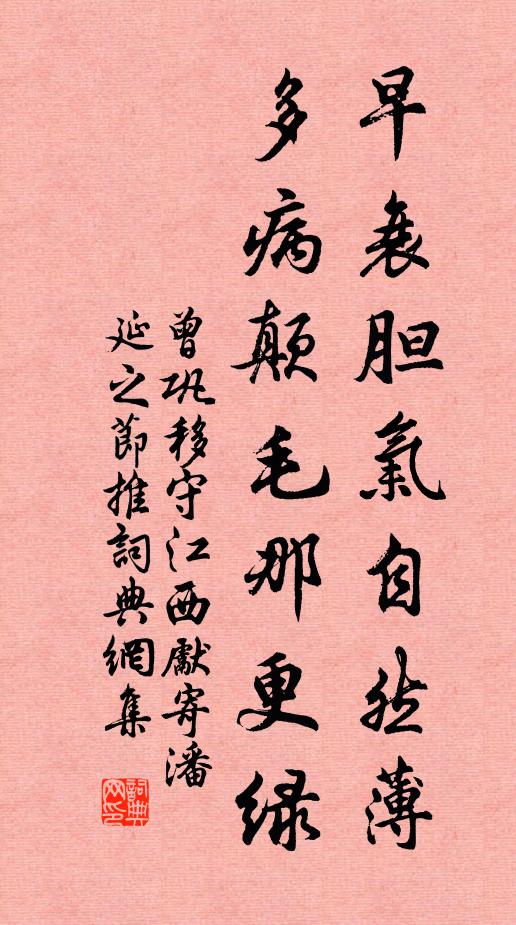 早衰胆氣自然薄
多病颠毛那更绿
曾巩移守江西獻寄潘
延之節推詞典網集
詞典
网印